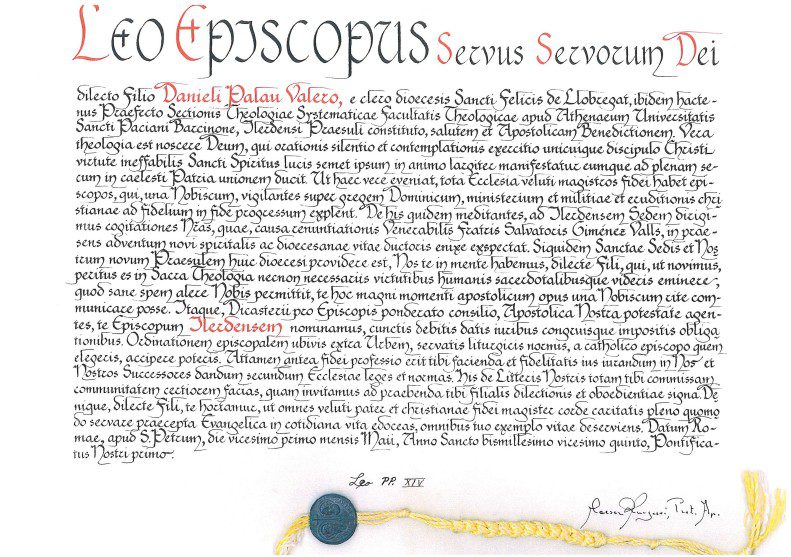 Leo Episcopus Servus Servorum Dei
dilecto Filio Danieli Palau Valero, e clero dioecesis Sancti Felicis de Llobregat, ibidem hacte-
nus Praefecto Sectionis Theologiae Systematicae Facultatis Theologicae apud Athenaeum Universitatis
Sancti Paciani Barcinone, Ilerdensi Praesuli constituto, salutem et Apostolicam Benedictionem. Vera
theologia est noscere Deum, qui orationis silentio et contemplationis exercitio unicuique discipulo Christi
virtute ineffabilis Sancti Spiritus lucis semet ipsum in animo largiter manifestatur eumque ad plenam se-
cum in caelesti Patria unionem ducit. Ut haec vere eveniat, tota Ecclesia veluti magistros fidei habet epi-
scopos, qui, una Nobiscum, vigilantes super gregem Dominicum, ministerium et militiae et eruditionis chri
stianae ad fidelium in fide progressum explent. De his quidem meditantes, ad Ilerdensem Sedem dirigi-
mus cogitationes Nras, quae, causa renuntiationis Venerabilis Fratris Salvatoris Giménez Valls, in prae-
sens adventum novi spiritalis ac dioecesanae vitae ductoris enixe exspectat. Siquidem Sanctae Sedis et Nos
trum novum Praesulem huic dioecesi providere est, Nos te in mente habemus, dilecte Fili, qui, ut novimus,
peritus es in Sacra Theologia necnon necessariis virtutibus humanis sacerdotalibusque videris eminere,
quod sane spem alere Nobis permittit, te hoc magni momenti apostolicum opus una Nobiscum rite com-
municare posse. Itaque, Dicasterii pro Episcopis ponderato consilio, Apostolica Nostra potestate agen-
tes, te Episcopum Ilerdensem nominamus, cunctis debitis datis iuribus congruisque impositis obliga
tionibus. Ordinationem episcopalem ubivis extra Urbem, servatis liturgicis normis, a catholico episcopo quem
elegeris, accipere poteris. Attamen antea fidei professio erit tibi facienda et fidelitatis ius iurandum in Nos et
Nostros Successores dandum secundum Ecclesiae leges et normas. His de Litteris Nostris totam tibi commissam
communitatem certiorem facias, quam invitamus ad praebenda tibi filialis dilectionis et oboedientiae signa. De
nique, dilecte Fili, te hortamur, ut omnes veluti pater et christianae fidei magister corde caritatis pleno quomo
do servare praecepta Evangelica in cotidiana vita edoceas, omnibus tuo exemplo vitae deserviens. Datum Ro-
mae, apud S. Petrum, die vicesimo primo mensis Maii, Anno Sancto bismillesimo vicesimo quinto, Pontifica-
tus Nostri primo.
Leo PP. XIV